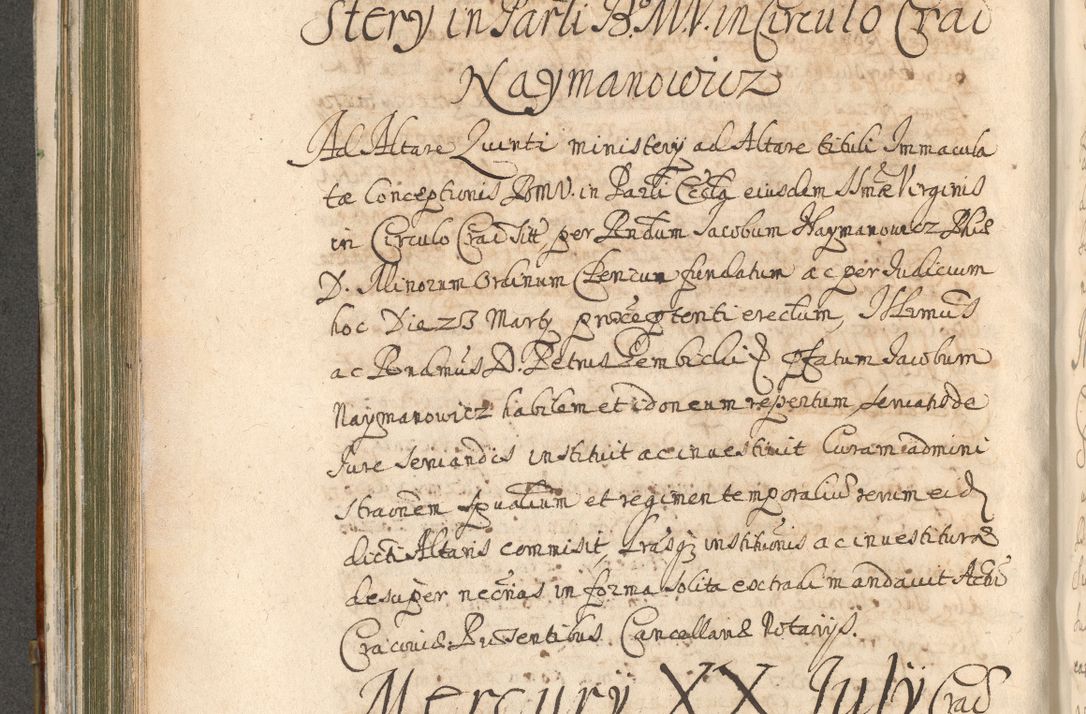 stery in Parli B.M.V. in Circulo Craci
Naymanowicz
Ad Altare Quinti ministery ad Altare tituli Immacula
tæ Conceptionis BMV. in Parli Eccla eiusdem SSmæ Virginis
in Circulo Craci Sitt per Rndum Jacobum Naymanowicz Phiæ
D. Minorum Ordinum Clericum fundatum ac per Judicium
hoc Die 23 Martij præcptenti erectum, Illrmus
ac Rendmus D. Petrus Gembicki pfatum Jacobum
Naymanowicz habilem et idoneum repertum, servatis de
Jure servandis instituit ac investivit Curam admini
straonem spualium et regimen temporaliũ rerum eid
dicti Altaris commisit, Lrasq institutionis ac investituræ
desuper necrias in forma solita extradi mandavit Acti
Craconiæ. Præsentibus Cancellariæ Notarijs.
Mercurij XX July Craci